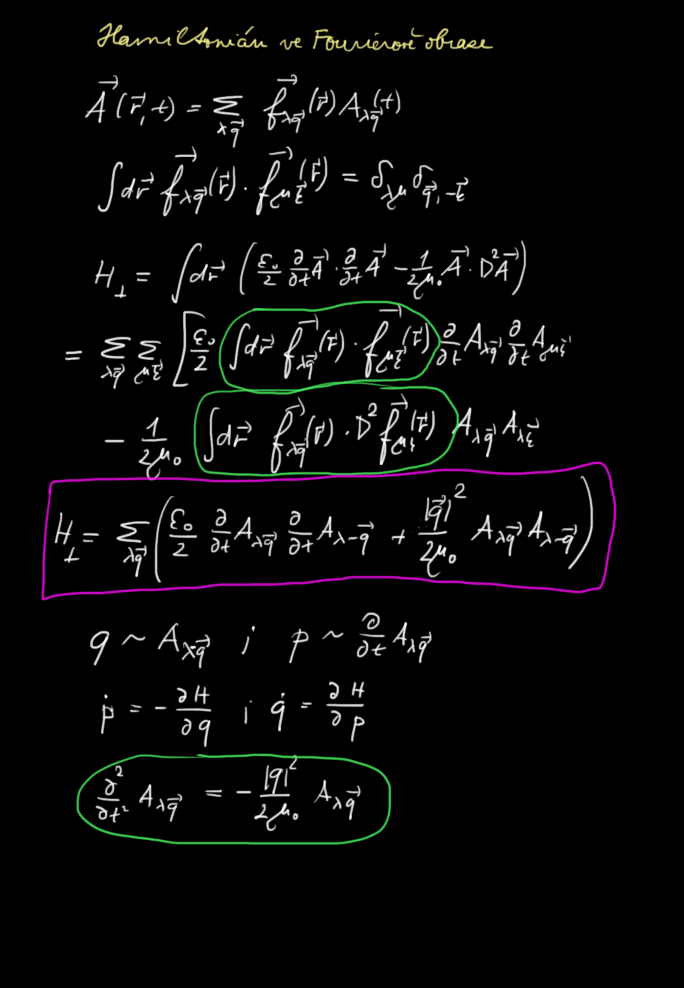 Hamiltonián ve Fourierově obraze
$\vec{A}(\vec{r},t) = \sum_{\lambda\vec{q}} \vec{f}_{\lambda\vec{q}}(\vec{r}) A_{\lambda\vec{q}}(t)$
$\int d\vec{r}\, \vec{f}_{\lambda\vec{q}}(\vec{r}) \cdot \vec{f}_{\mu\vec{k}}(\vec{r}) = \delta_{\lambda\mu} \delta_{\vec{q},-\vec{k}}$
$H_\perp = \int d\vec{r} \left( \frac{\varepsilon_0}{2} \frac{\partial}{\partial t}\vec{A} \cdot \frac{\partial}{\partial t}\vec{A} - \frac{1}{2\mu_0} \vec{A} \cdot \nabla^2 \vec{A} \right)$
$= \sum_{\lambda\vec{q}} \sum_{\mu\vec{k}} \left[ \frac{\varepsilon_0}{2} \int d\vec{r}\, \vec{f}_{\lambda\vec{q}}(\vec{r}) \cdot \vec{f}_{\mu\vec{k}}(\vec{r}) \frac{\partial}{\partial t} A_{\lambda\vec{q}} \frac{\partial}{\partial t} A_{\mu\vec{k}} \right.$
$- \frac{1}{2\mu_0} \int d\vec{r}\, \vec{f}_{\lambda\vec{q}}(\vec{r}) \cdot \nabla^2 \vec{f}_{\mu\vec{k}}(\vec{r}) A_{\lambda\vec{q}} A_{\lambda\vec{k}}$
$H_\perp = \sum_{\lambda\vec{q}} \left( \frac{\varepsilon_0}{2} \frac{\partial}{\partial t} A_{\lambda\vec{q}} \frac{\partial}{\partial t} A_{\lambda-\vec{q}} + \frac{|\vec{q}|^2}{2\mu_0} A_{\lambda\vec{q}} A_{\lambda-\vec{q}} \right)$
$q \sim A_{\lambda\vec{q}} \; ; \; p \sim \frac{\partial}{\partial t} A_{\lambda\vec{q}}$
$\dot{p} = -\frac{\partial H}{\partial q} \; ; \; \dot{q} = \frac{\partial H}{\partial p}$
$\frac{\partial^2}{\partial t^2} A_{\lambda\vec{q}} = -\frac{|q|^2}{2\mu_0} A_{\lambda\vec{q}}$